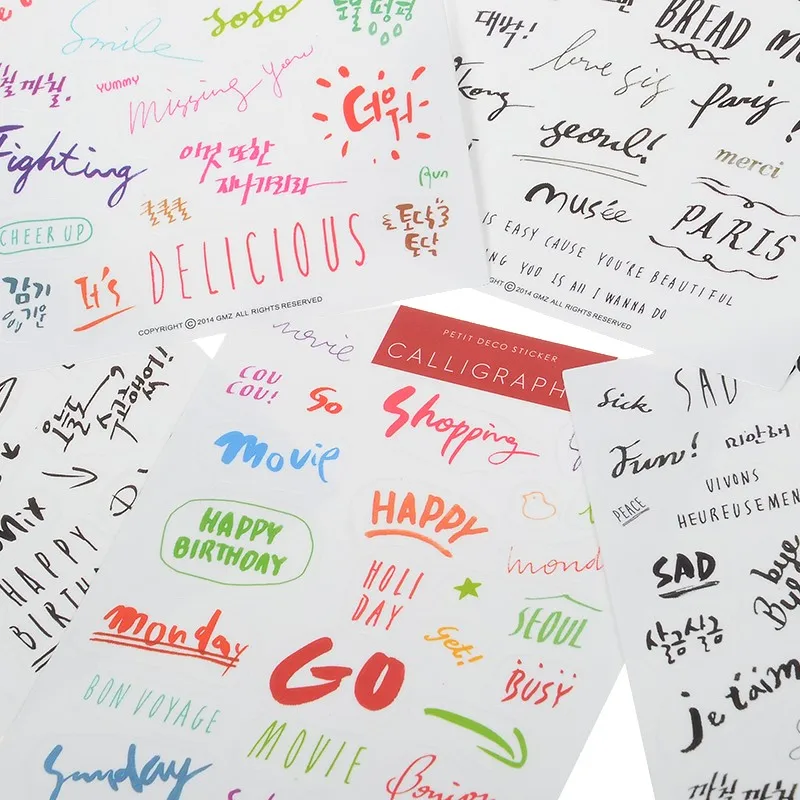 Smile
soso
대박!
BREAD
까칠
YUMMY
missing you
더워
love sis
Paris
Kong
seoul!
merci
Fighting
이것 또한
지나가리라
Run
musée
PARIS
CHEER UP
쿨쿨쿨
토닥
토닥
IS EASY CAUSE YOU'RE BEAUTIFUL
YOU IS All I WANNA DO
감기
It's
DELICIOUS
COPYRIGHT ©2014 GMZ ALL RIGHTS RESERVED
GMZ ALL RIGHTS RESERVED
movie
PETIT DECO STICKER
CALLIGRAPH
COU
COU!
Go
Shopping
Movie
Sick
SAD
Fun!
미안해
VIVONS
PEACE
HEUREUSEMEN
HAPPY
BIRTHDAY
HAPPY
HOLI
DAY
mond
SAD
bye
Bye
HAPPY
monday
get!
SEOUL
살금살금
GO
BUSY
BON VOYAGE
MOVIE
je t'aim
Sunday
Bonjou
까칠 까칠